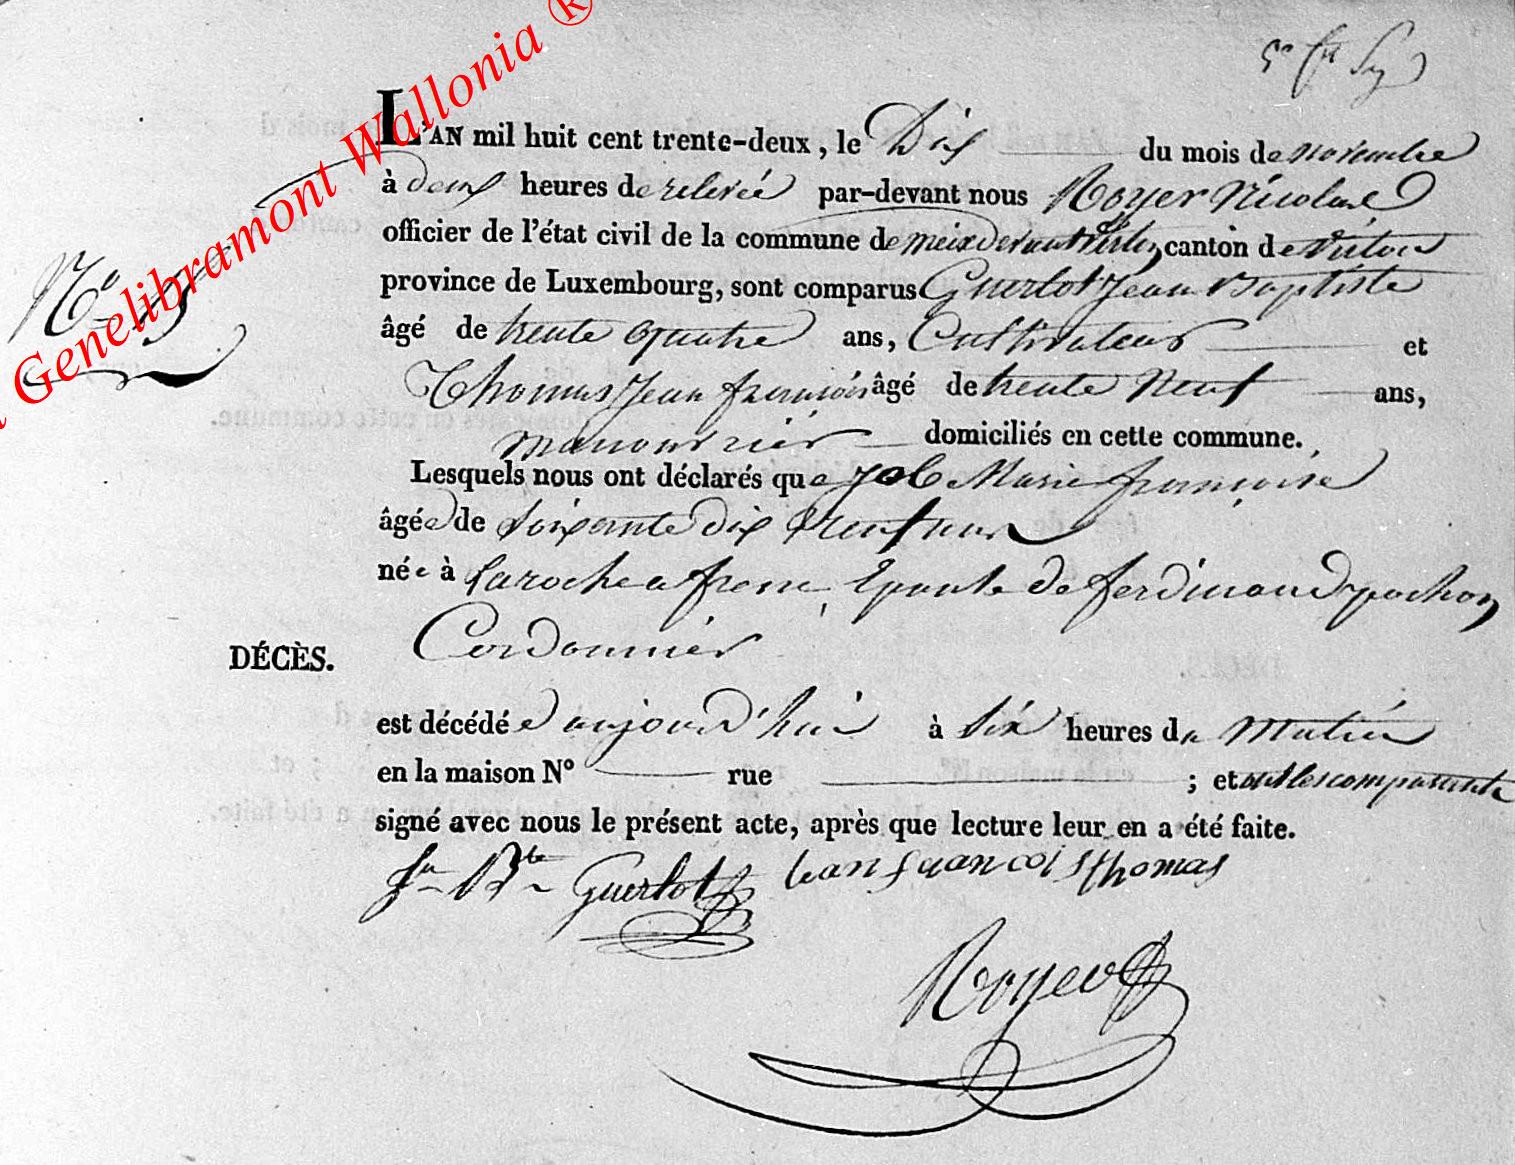 5e ft Sy
L'AN mil huit cent trente-deux, le Dix du mois de novembre
à deux heures de relevée par-devant nous Royer Nicolas
officier de l'état civil de la commune de meix devant Virton canton de Virton
province de Luxembourg, sont comparus Guerlot Jean Baptiste
âgé de trente quatre ans, Cultivateur et
Thomas Jean françois âgé de trente Neuf ans,
manouvrier domiciliés en cette commune.
Lesquels nous ont déclarés que Job Marie françoise
âgée de soixante dix Neuf ans
née à Laroche a frene, Epouse de ferdinand pochon
Cordonnier
est décédée aujourd'hui à six heures du Matin
en la maison N° rue ; et ont les comparants
signé avec nous le présent acte, après que lecture leur en a été faite.
Jn Bte Guerlot Jean francois thomas
Royer
DÉCÈS.
Genelibramont Wallonia ®